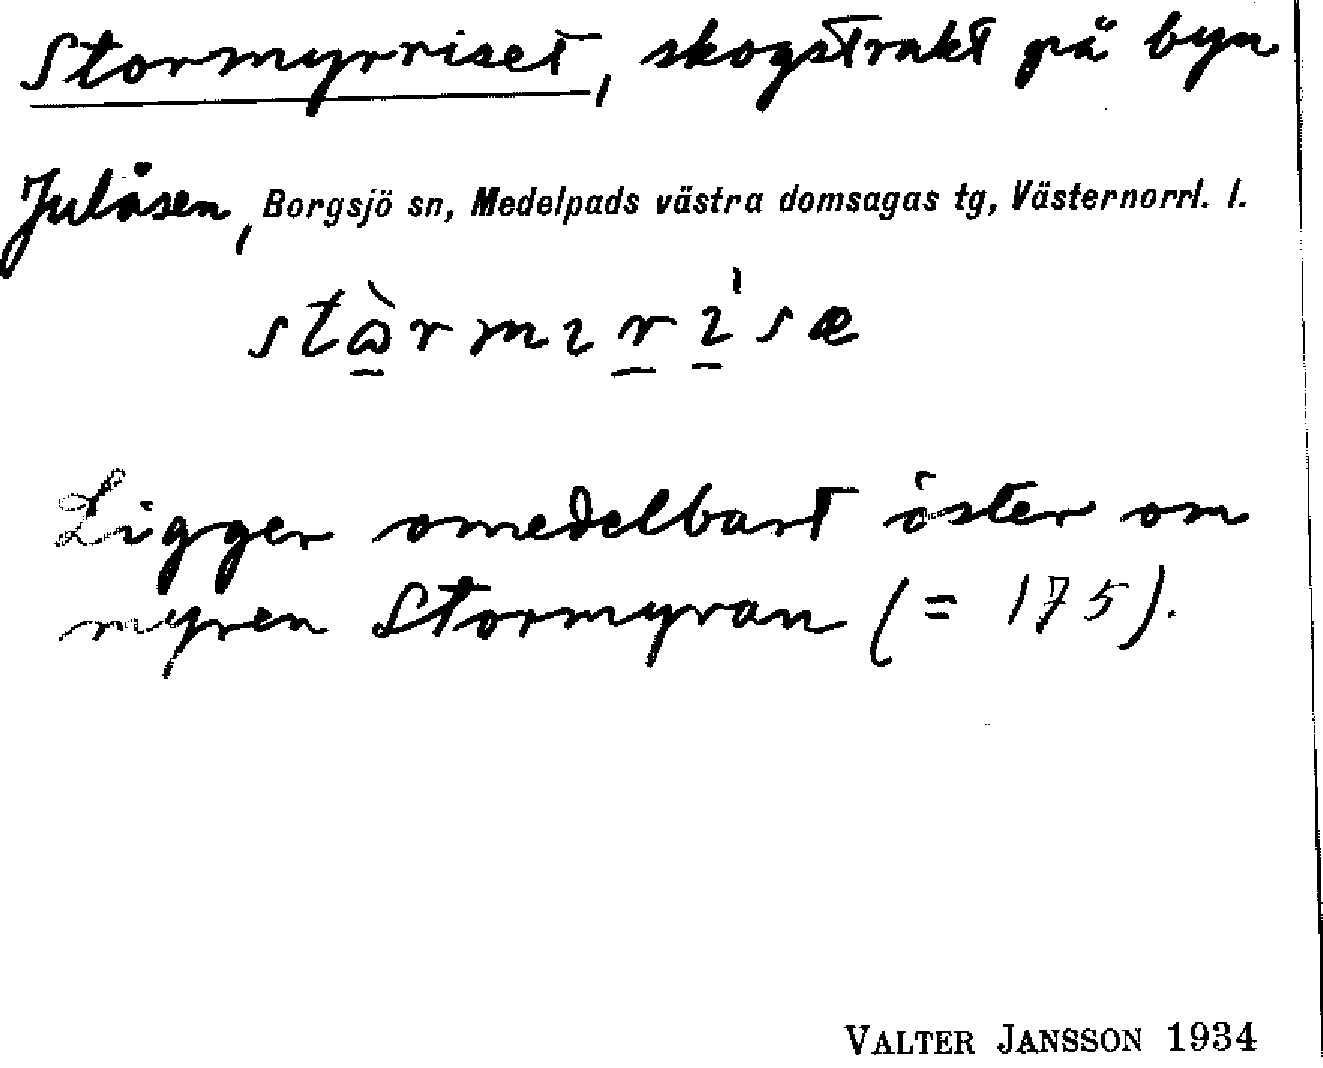 Stormyrriset, skogstrakt på byn
Julåsen, Borgsjö sn, Medelpads västra domsagas tg, Västernorrl. l.
Ligger omedelbart öster om
myren Stormyran (= 175).
VALTER JANSSON 1934